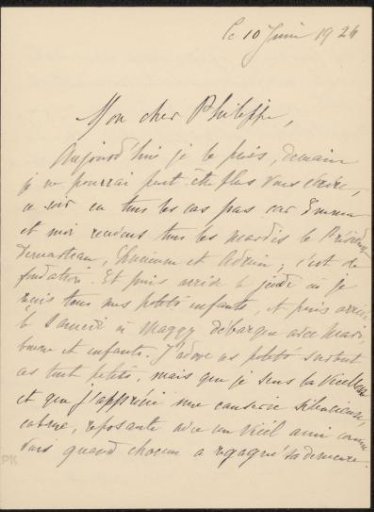 le 10 Juin 1926
Mon cher Philippe,
Aujourd'hui je le puis, demain
je ne pourrai peut être plus vous écrire,
ce soir en tous les cas pas car Emma
et moi recevons tous les mardis le
et Adrien, c'est de
fondation. Et puis arrive le jeudi où je
reçois tous mes petits enfants, et puis arrive
le samedi où Maggy débarque avec mari,
et enfants. J'adore ces petits surtout
ces tout petits, mais que je sens la vieillesse
et que j'apprécie une causerie silencieuse,
calme, reposante avec un vieil ami comme
vous quand chacun a regagné sa demeure.
PK